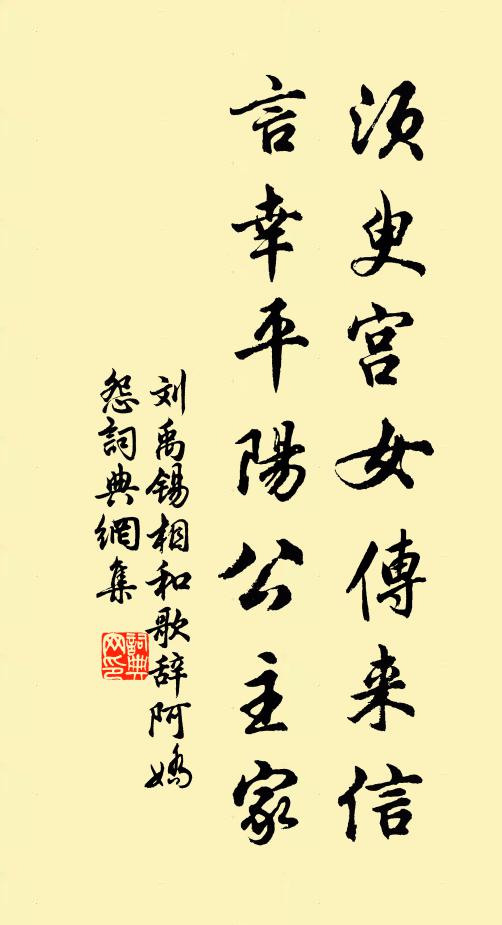 須臾宮女傳来信
言幸平陽公主家
刘禹锡相和歌辞阿嬌
怨詞典網集
詞典网印